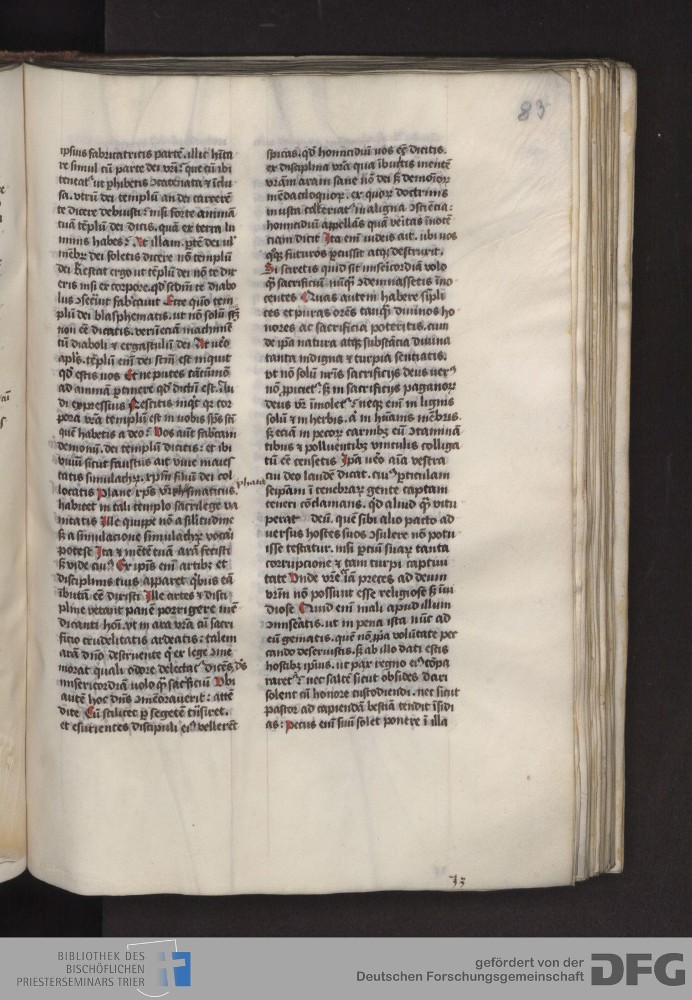 83
ipsius fabricatricis partē. illic hn̄ta
re simul cū parte dei vr̄i: que cū ibi
teneatʳ ut phibetis ɔcatenata ⁊ iclu
sa. vtrū dei templū an dei carcerē
te dicere debuisti: nisi forte animā
tuā tēplū dei dicis. quā ex terra lu
minis habes: At illam. ptē dei ul
mēbrꝫ dei soletis dicere nō templū
dei Restat ergo ut tēplū dei nō te dix
eris nisi ex corpore. qd̄ scd̄m te diabo
lus fabͥcauit Ecce quō tem
plū dei blasphematis. ut nō solū
non eē dicatis. verūeciā machinē
tū diaboli ⁊ ergastulū dei At ūo
apl̄s. tēplū em̄ dei sc̄m est inquit
qd̄ estis uos Et ne putes tātūmō
ad animā ptinere qd̄ dictū est. Au
di expressius Nescitis inqͭ qꝛ cor
pora vr̄a templū est in uobis sp̄s sc̄i
quē habetis a deo: Vos aūt fabͥcam
demonū. dei templū dicitis: et ibi
viuū sicut faustus ait viue maies
tatis simulachꝝ. xpm̄ filiū dei col
locatis Plane xp̄s vr̄ phāsmaticus.
phana
habitet in tali templo sacrilege va
nitatis Ille quippe nō a silitudine
sꝫ a simulacione simulachꝝ vocāi
potest Ita ⁊ mētē tuā arā fecisti
sꝫ vide cuiꝰ Ex ip̄is em̄ artibꝫ et
disciplinis eius apparet qͥbus eā
ibutā eē dixisti Ille artes ⁊ disci
pline vetant panē porrigere mē
dicanti hoī. vt in ara vr̄a cū sacri
ficio crudelitatis ardeatis: talem
arā dn̄o destruente qͥ ex lege ɔme
morat quali odore delectatʳ dicēs dꝫ
misericordiā volo qͫ sacͥficiū Vbi
autē hoc dn̄s ɔmēorauerit: attē
dite Cū scilicet p segetē tͣnsiret.
et esurientes discipuli eiꝰ vellerēt
spicas. qd̄ homicidiū uos eē dicitis.
ex disciplina vr̄a qua ibutis mentē
vr̄am aram sane nō dei sꝫ demonioꝝ
mēdaciloquoꝝ. ex quoꝝ doctrinis
in usta maligna ɔsciēcia:
homicidiū appellās quā veritas inocē
ciam dicit Ita em̄ iudeis ait. ubi uos
qͦsqꝫ futuros pcussit atqꝫ destruxit.
Si sciretis quid sit misericordiā volo
qͫ sacrificiū nūqͫ ɔdemnassetis ino
centes Quas autem habere simpli
ces et puras orēs tanqͫ diuinos ho
nores ac sacrificia poteritis. cum
de ipa natura atqꝫ substācia diuina
tanta indigna ⁊ turpia sentiatis.
vt nō solū nris sacrificijs deus verꝰ
nō ppicietʳ sꝫ in sacrificijs paganoꝝ
deus vr̄ imoletʳ: neqꝫ em̄ in lignis
solū ⁊ in herbis. ā in hūanis mēbris.
sꝫ eciā in pecoꝝ carnibꝫ eū ɔtamina
tibus ⁊ polluentibꝫ vinculis colliga
tū eē censetis Ipa ūo aīa vestra
cui deo laudē dicat. cuiꝰ pticulam
seipam i tenebraꝝ gente captam
teneri cōclamans. qd̄ aliud qͫ vitu
perat deū. quē sibi alio pacto ad
uersus hostes suos ɔsulere nō potu
isse testatur. nisi ptiū suaꝝ tanta
corrupcione ⁊ tam turpi captiui
tate Vnde vr̄e iā preces ad deum
vr̄m nō possunt esse religiose sꝫ iui
diose Quid em̄ mali apud illum
ɔmiseratis. ut in pena ista nūc ad
eū gematis. quē nō ppa volūtate pec
cando deseruistis. sꝫ ab illo dati estis
hostibꝫ ipsius. ut pax regno eiꝰ cōpa
raretʳ: nec saltē sicut obsides dari
solent cū honore custodiendi. nec sicut
pastor ad capiendā bestiā tendit isidi
as: Pecus em̄ suū solet ponere i illa
BIBLIOTHEK DES
BISCHÖFLICHEN
PRIESTERSEMINARS TRIER
gefördert von der
Deutschen Forschungsgemeinschaft
DFG